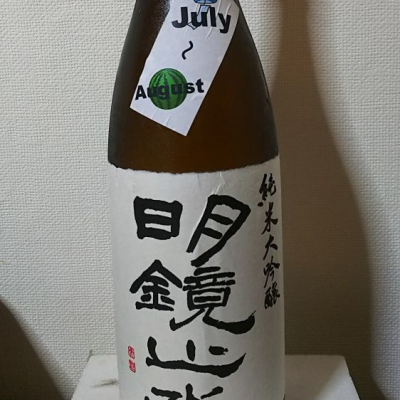 July
～
August
純米大吟醸
明鏡止